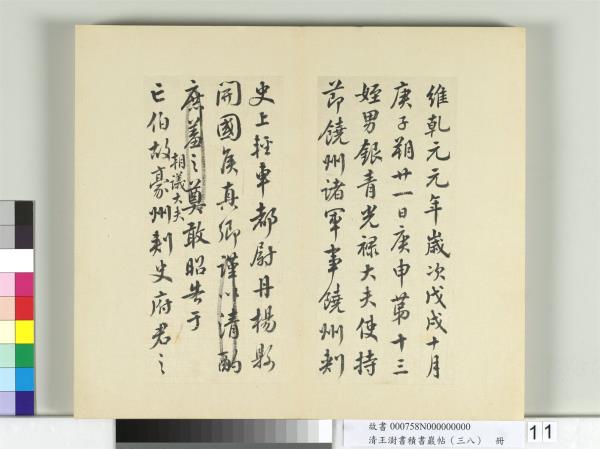 維乾元元年歲次戊戌十月
庚子朔廿一日庚申第十三
姪男銀青光祿大夫使持
節饒州諸軍事饒州刺
史上輕車都尉丹楊縣
開國侯真卿謹以清酌
庶羞之奠敢昭告于
亡伯故豪州刺史府君之
相議大夫
故書 000758N000000000
清王澍書積書巖帖(三八) 冊
11